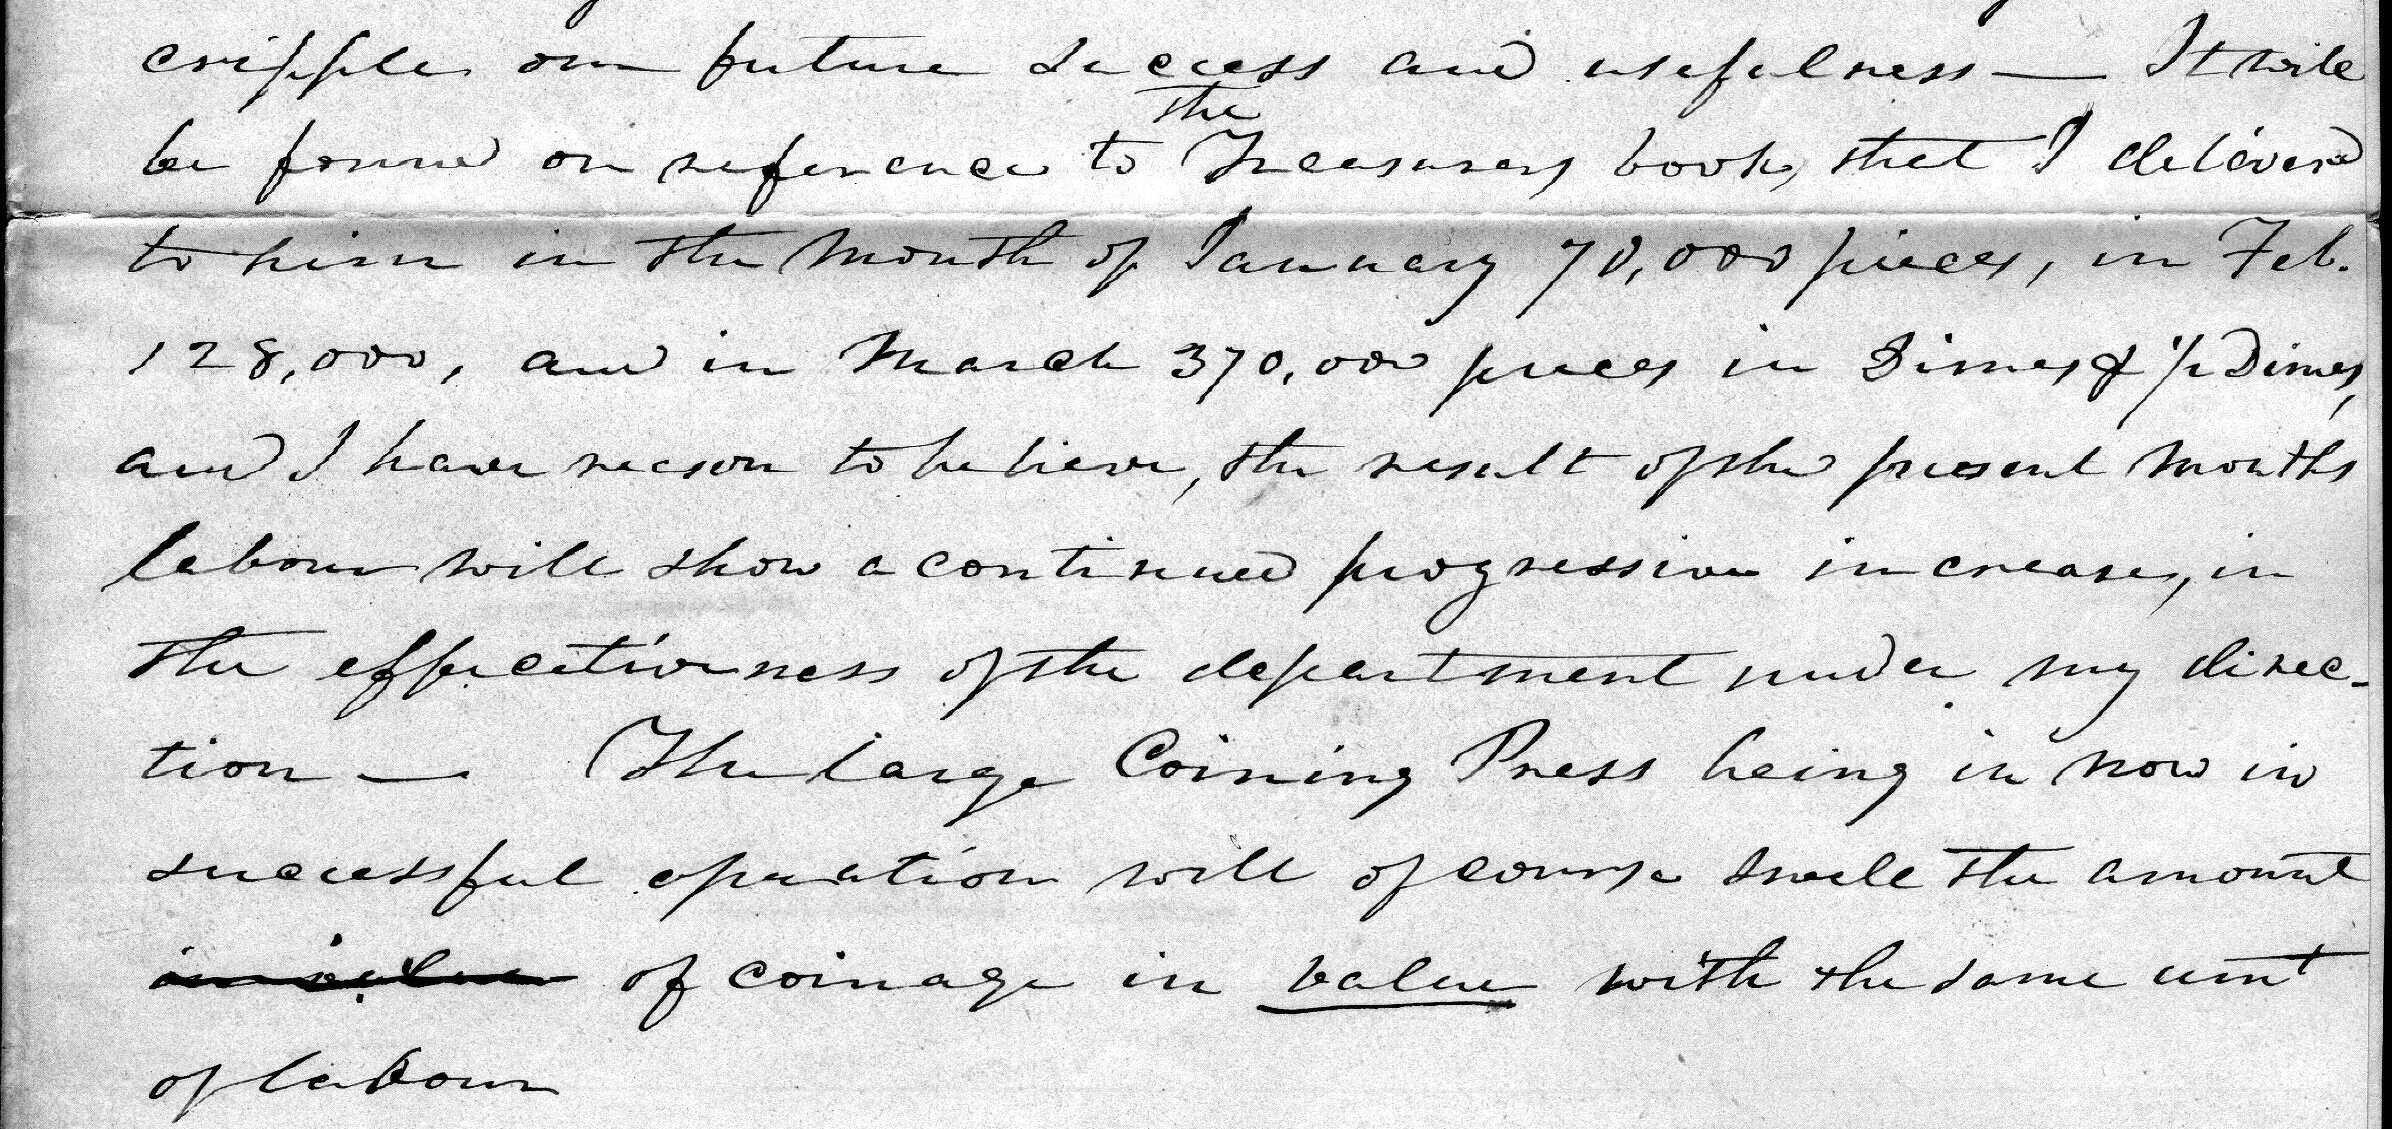 cripple our future success and usefulness — It will
the
be found on reference to Treasurers books, that I delivered
to him in the month of January 70,000 pieces, in Feb.
128,000, and in March 370,000 pieces in Dimes & 1/2 Dimes,
and I have reason to believe, the result of the present months
labour will show a continued progressive increase, in
the effectiveness of the department under my direc-
tion — The large Coining Press being in now in
successful operation will of course swell the amount
in value of coinage in value with the same amt
of labour